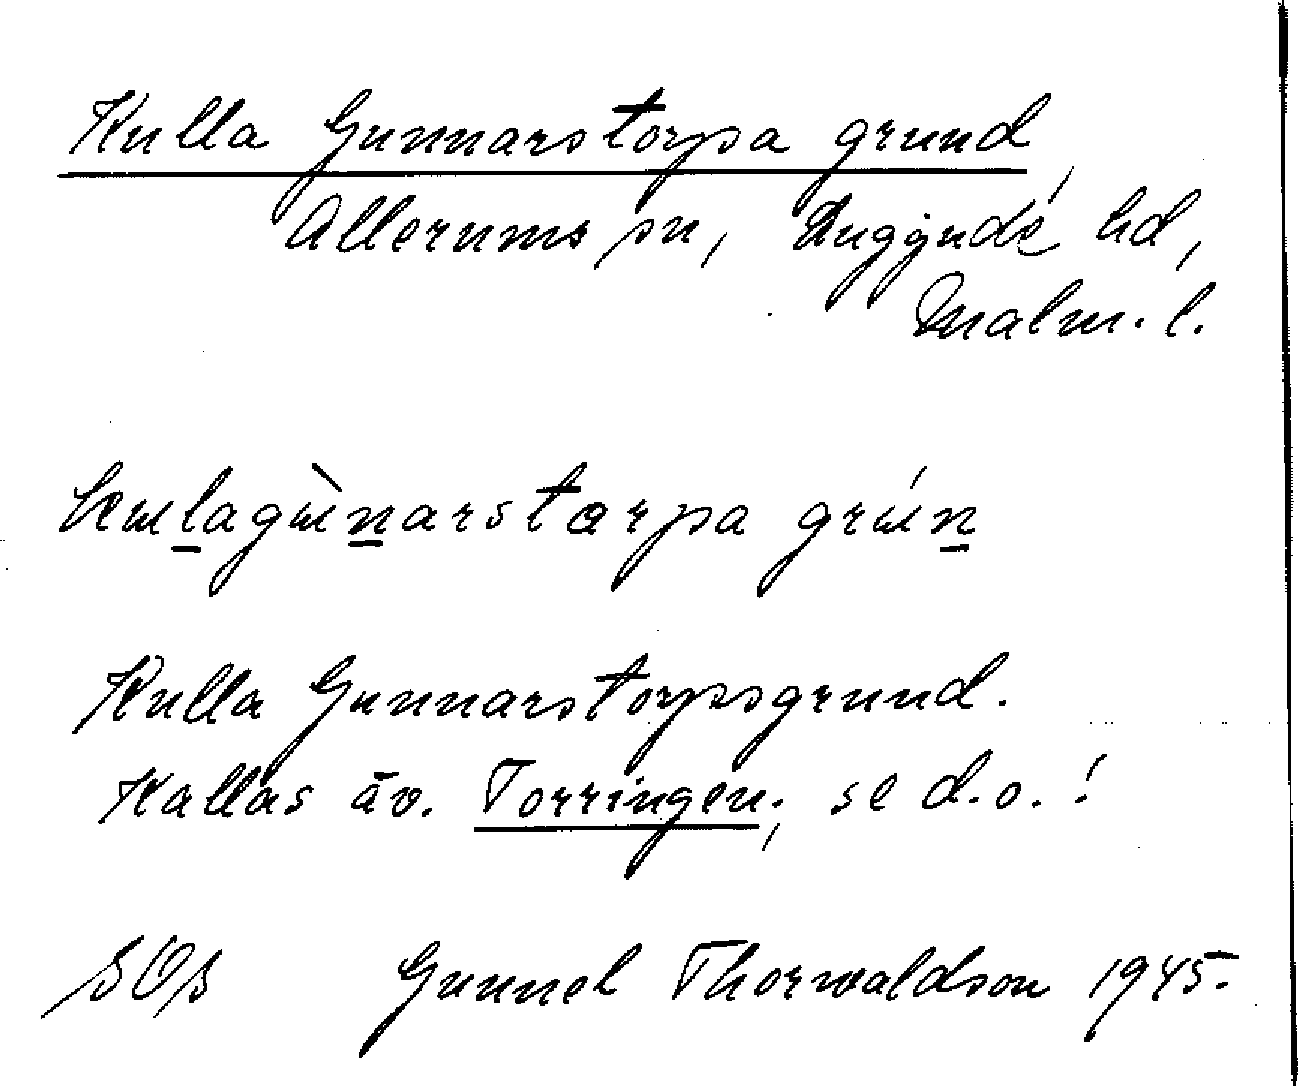 Kulla Gunnarstorpa grund,
Allerums sn, Luggude hd,
Malm. l.
grɯ́n̠
Kulla Gunnarstorpsgrund.
Kallas äv. Torringen; se d.o.!
Gunnel Thorwaldson 1945.